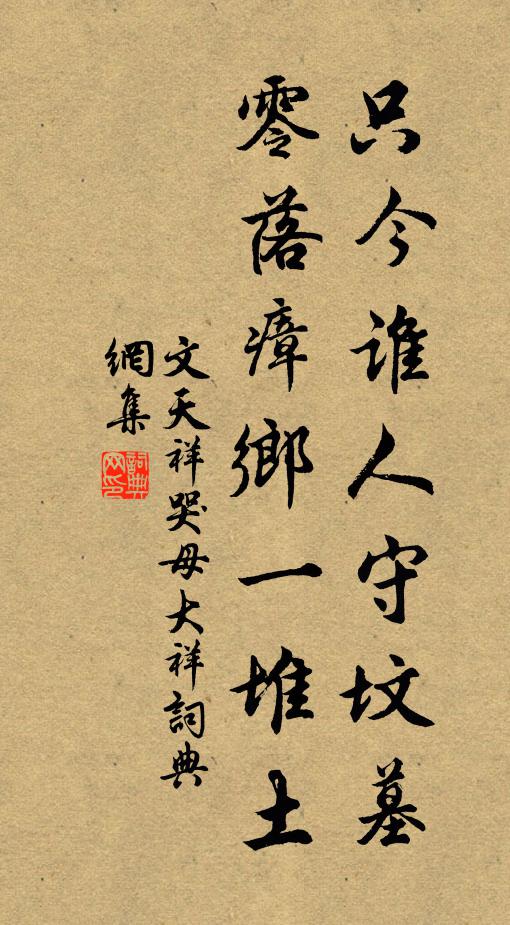 只今誰人守坟墓
零落瘴鄉一堆土
文天祥哭母大祥詞典
網集
詞典网印